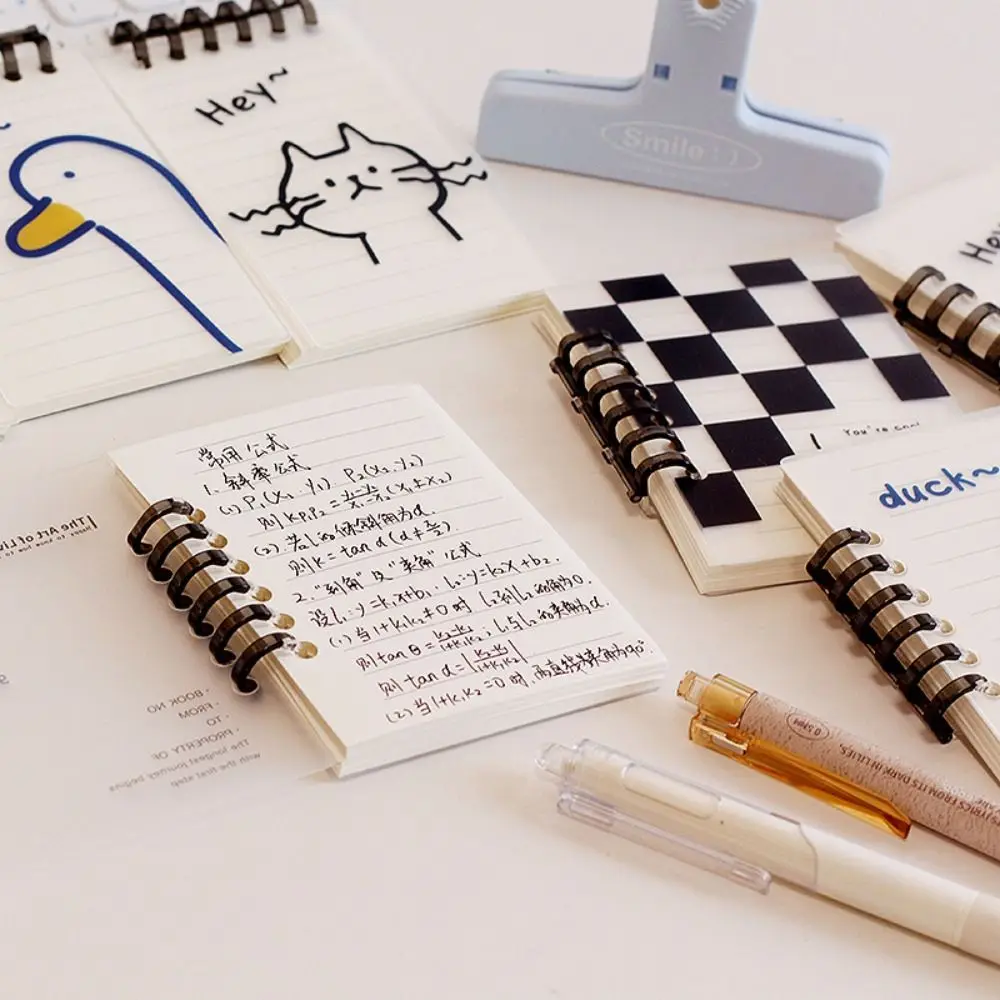 Hey~
Smile : )
Hey
You're
duck~
常用公式
1. 斜率公式
(1). P₁(x₁, y₁). P₂(x₂, y₂)
则 kP₁P₂ = y₁-y₂/x₁-x₂ (x₁≠x₂)
(2). 若l的倾斜角为α.
则k = tan α (α≠π/2)
2. "到角"及"夹角"公式
设l₁: y=k₁x+b₁. l₂: y=k₂x+b₂.
(1) 当1+k₁k₂≠0时 l₁到l₂的角为θ.
则tan θ = k₂-k₁/1+k₁k₂; l₁与l₂的夹角为α.
则 tan α = |k₂-k₁/1+k₁k₂|
(2) 当1+k₁k₂=0时, 两直线夹角为90°.
The Art of
· BOOK NO
· FROM
· TO
· PROPERTY OF
The longest journey begins
with the first step
0.5MM
LYRICS FROM ITS DARK IN LILIES,